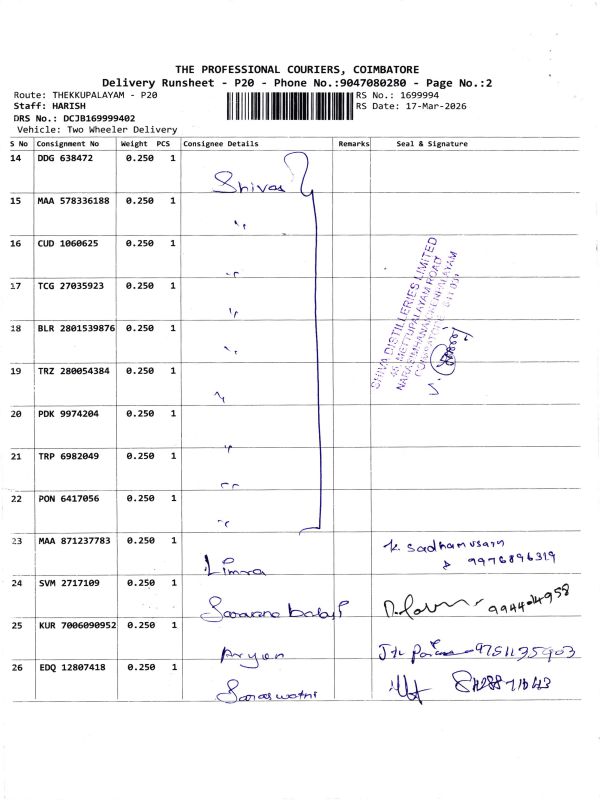 THE PROFESSIONAL COURIERS, COIMBATORE
Delivery Runsheet - P20 - Phone No.:9047080280 - Page No.:2
Route: THEKKUPALAYAM - P20
RS No.: 1699994
Staff: HARISH
RS Date: 17-Mar-2026
DRS No.: DCJB169999402
Vehicle: Two Wheeler Delivery
S No Consignment No Weight PCS Consignee Details Remarks Seal & Signature
14 DDG 638472 0.250 1 Shivas
15 MAA 578336188 0.250 1 "
16 CUD 1060625 0.250 1 "
17 TCG 27035923 0.250 1 "
18 BLR 2801539876 0.250 1 "
19 TRZ 280054384 0.250 1 "
20 PDK 9974204 0.250 1 "
21 TRP 6982049 0.250 1 "
22 PON 6417056 0.250 1 "
SHIVA DISTILLERIES LIMITED
METTUPALAYAM ROAD
COIMBATORE
23 MAA 871237783 0.250 1 Limra 9976896319
24 SVM 2717109 0.250 1 Saravana
25 KUR 7006090952 0.250 1 Aryan 9751135903
26 EDQ 12807418 0.250 1 Saraswathi